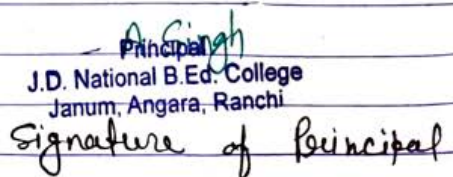 A. Singh
Principal
J.D. National B.Ed. College
Janum, Angara, Ranchi
Signature of Principal